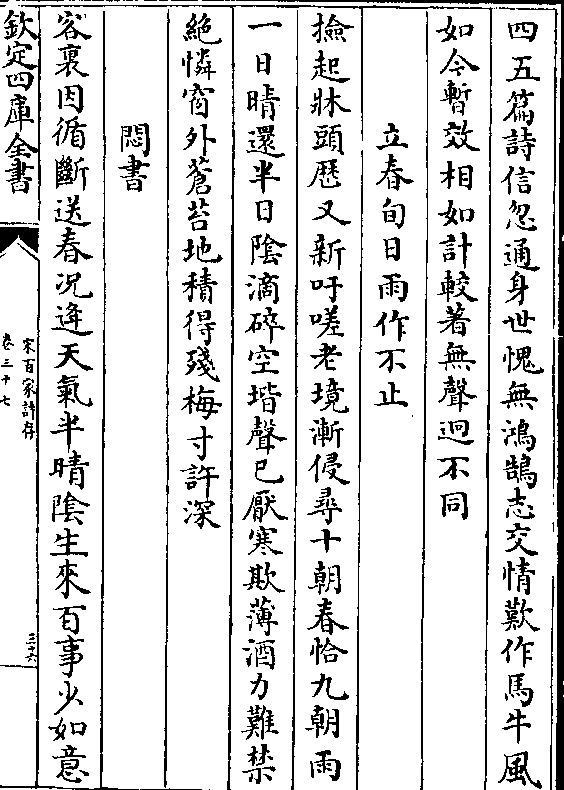 四五篇詩信忽通身世愧無鴻鵠志交情歎作馬牛風
如今暫效相如計較著無聲迥不同
立春旬日雨作不止
撿起牀頭厯又新吁嗟老境漸侵尋十朝春恰九朝雨
一日晴還半日陰滴碎空堦聲已厭寒欺薄酒力難禁
絶憐窗外蒼苔地積得殘梅寸許深
悶書
客裏因循斷送春况逢天氣半晴陰生來百事少如意
欽定四庫全書
宋百家詩存
卷三十七
三十六